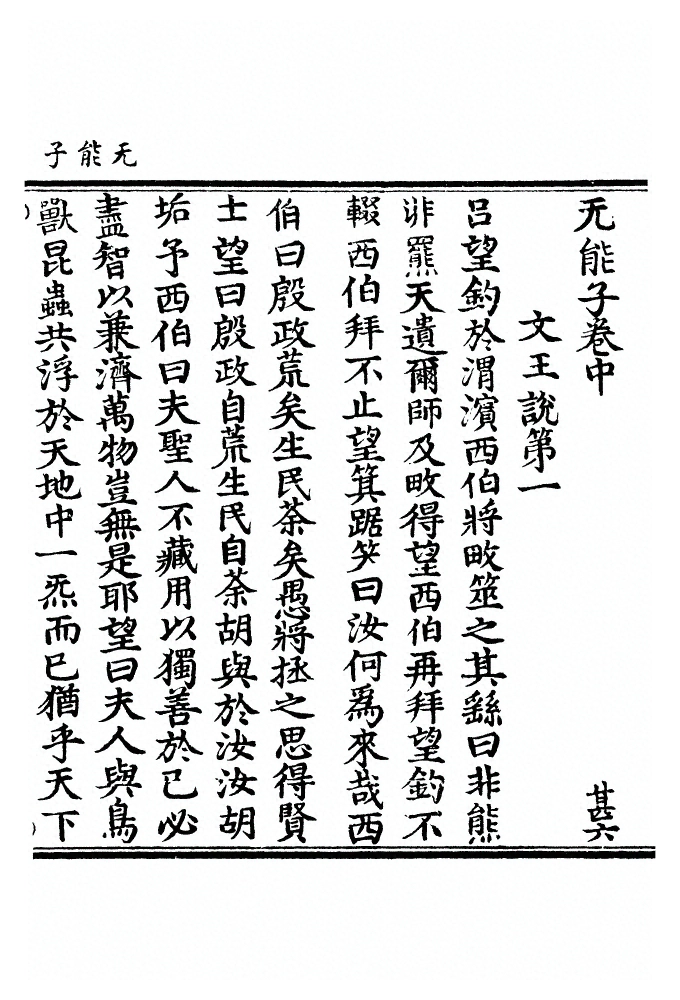 无能子
无能子卷中 甚六
文王說第一
呂望釣於渭濱西伯將畋筮之其繇曰非熊
非羆天遺爾師及畋得望西伯再拜望釣不
輟西伯拜不止望箕踞笑曰汝何爲來哉西
伯曰殷政荒矣生民荼矣愚將拯之思得賢
士望曰殷政自荒生民自荼胡與於汝汝胡
垢予西伯曰夫聖人不藏用以獨善於已必
盡智以兼濟萬物豈無是耶望曰夫人與鳥
獸昆蟲共浮於天地中一炁而已猶乎天下